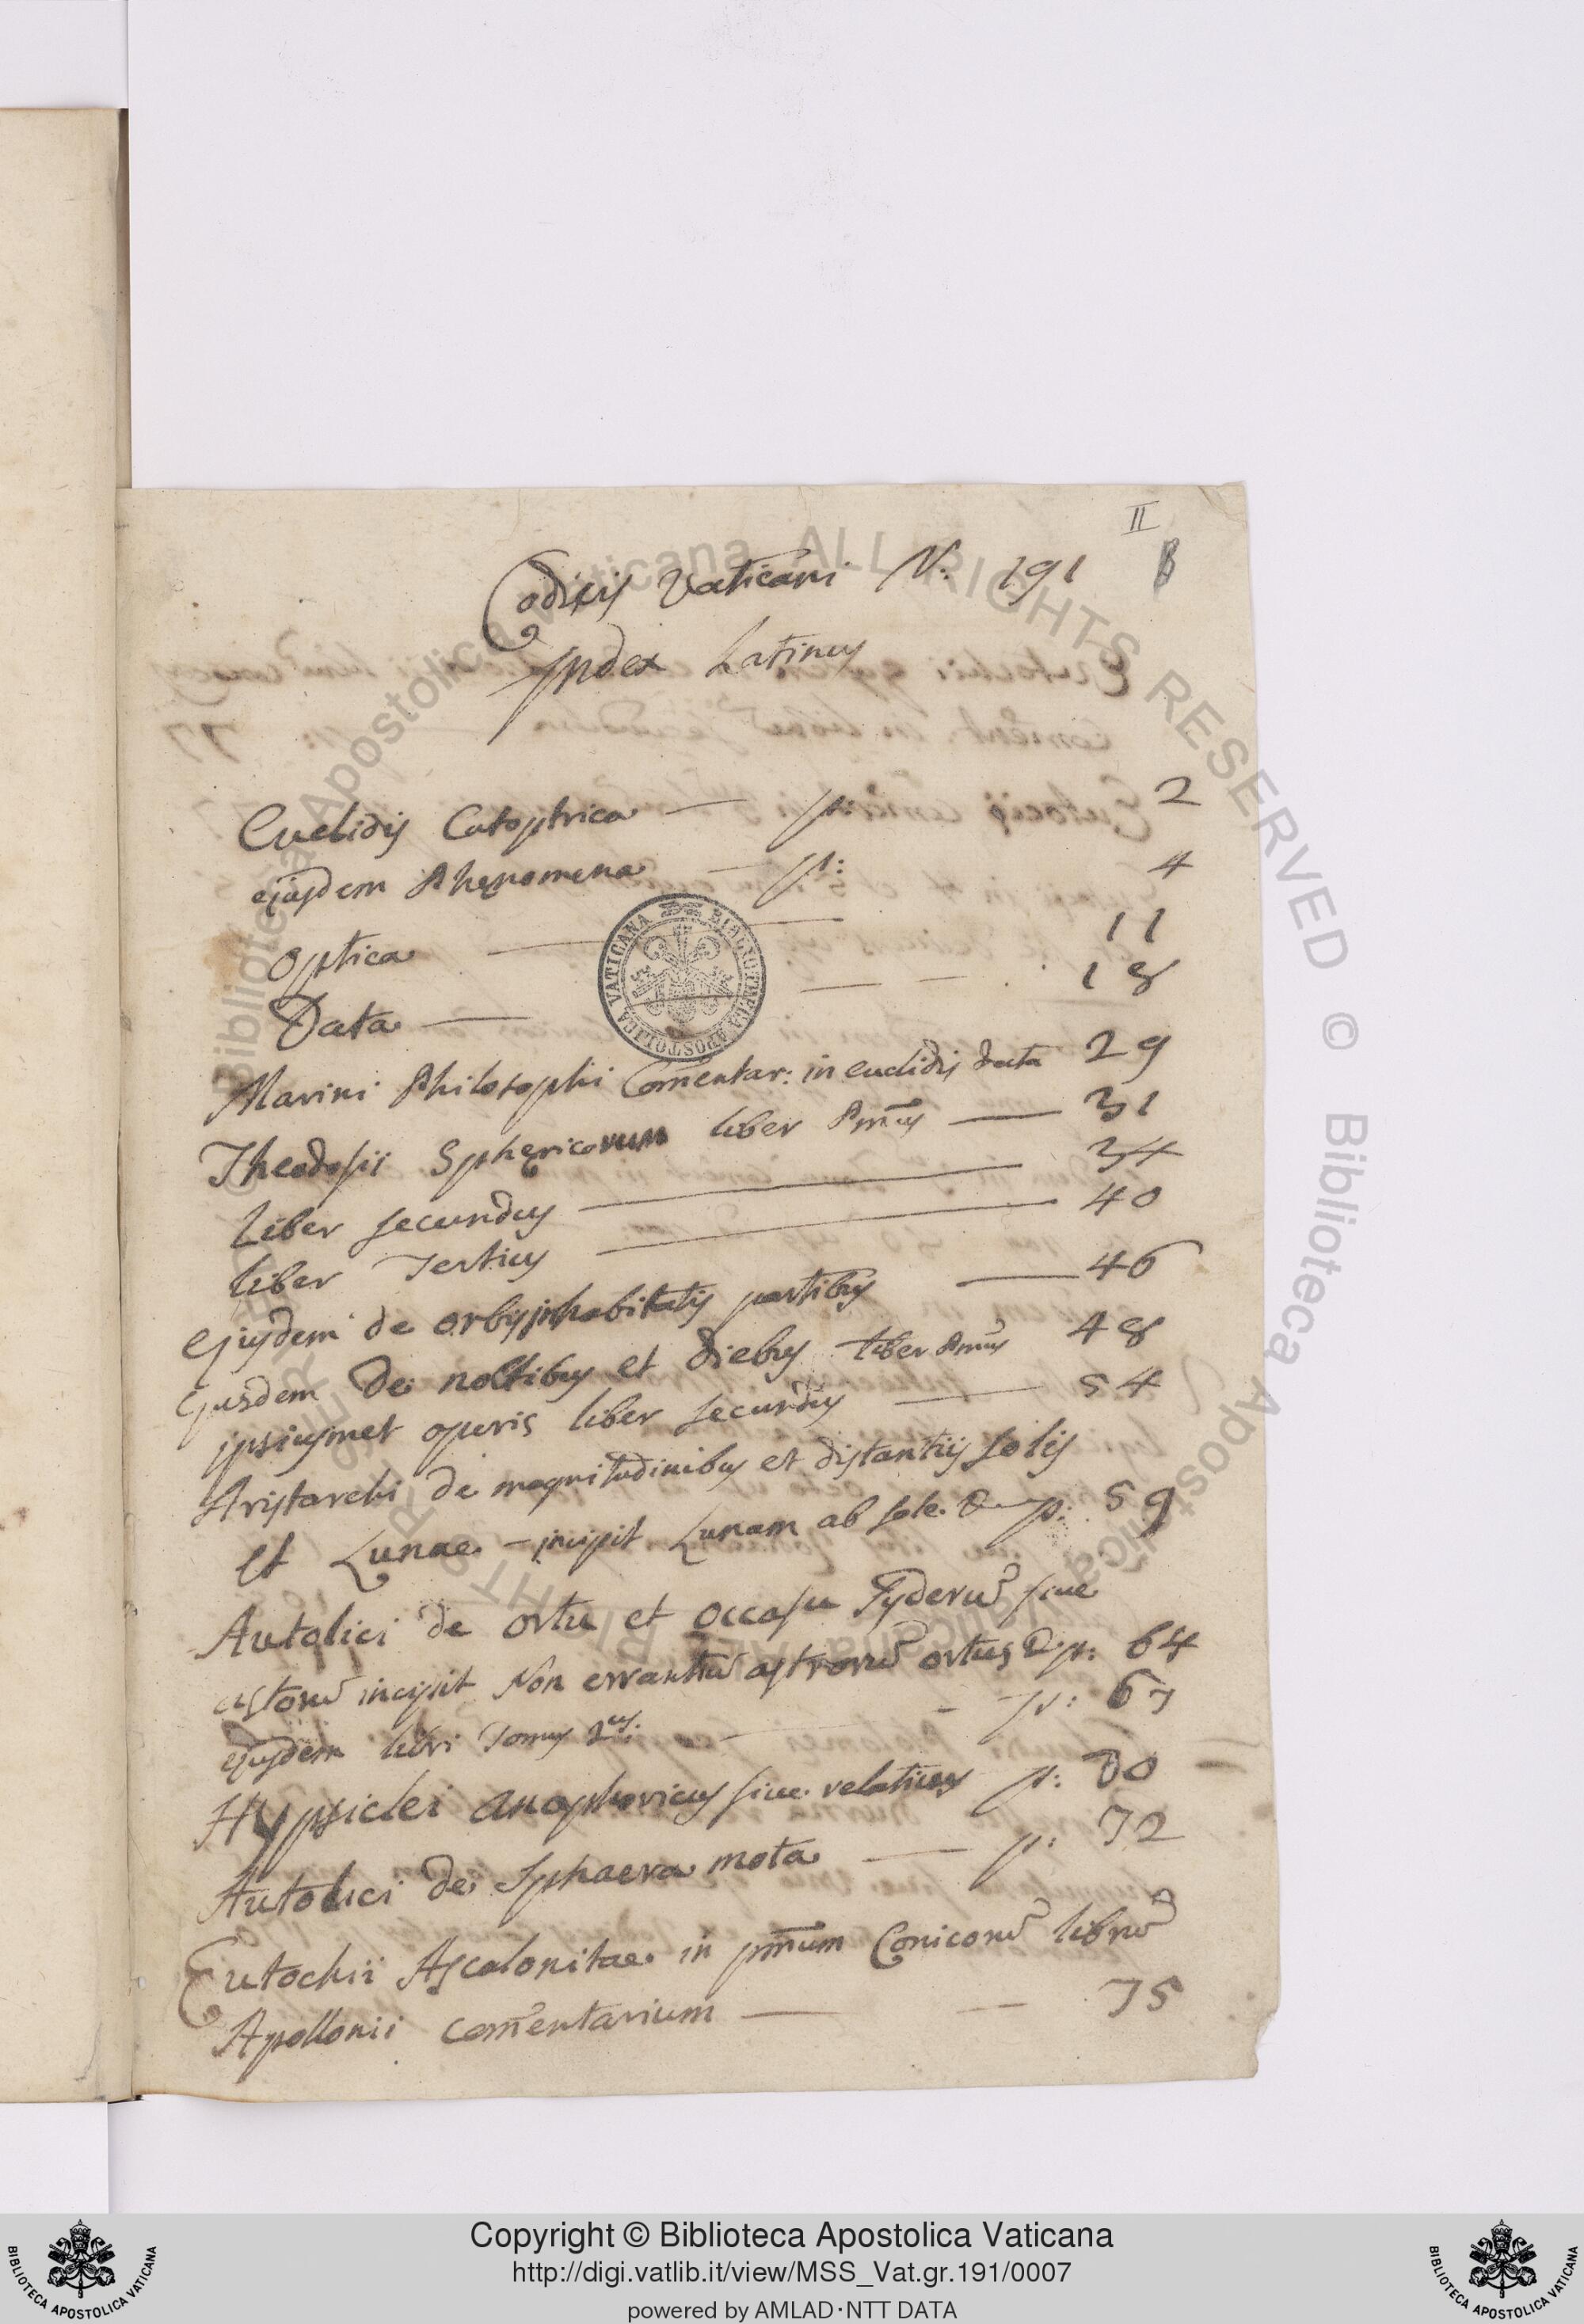 II
B
Codicis Vaticani N: 191
Index Latinus
Euclidis Catoptrica — p: 2
ejusdem Phęnomena — p: 4
Optica — 11
Data — 18
Marini Philosophi Com̄entar: in euclidis data 29
Theodosii Sphęricorum liber Pm̄us — 31
Liber secundus — 34
liber Tertius — 40
Ejusdem de orbis inhabitatis partibus — 46
Ejusdem De noctibus et diebus liber Pm̄us 48
ipsiusmet operis liber secundus — 54
Aristarchi de magnitudinibus et distantiis solis
et Lunae — incipit Lunam ab sole. & p: 59
Autolici de ortu et occasu syderū sive
astorū incipit Non errantiū astrorū ortus & p: 64
ejusdem libri Tomus 2us. — p: 67
Hypsiclei anaphoricus sive relativus p: 70
Autolici de Sphaera mota — p: 72
Eutochii Ascalonitae in pm̄um Conicorū librū
Apollonii com̄entarium — 75
BIBLIOTHECA APOSTOLICA VATICANA
Biblioteca Apostolica Vaticana ALL RIGHTS RESERVED ©
Copyright © Biblioteca Apostolica Vaticana
http://digi.vatlib.it/view/MSS_Vat.gr.191/0007
powered by AMLAD·NTT DATA
BIBLIOTECA APOSTOLICA VATICANA
BIBLIOTECA APOSTOLICA VATICANA